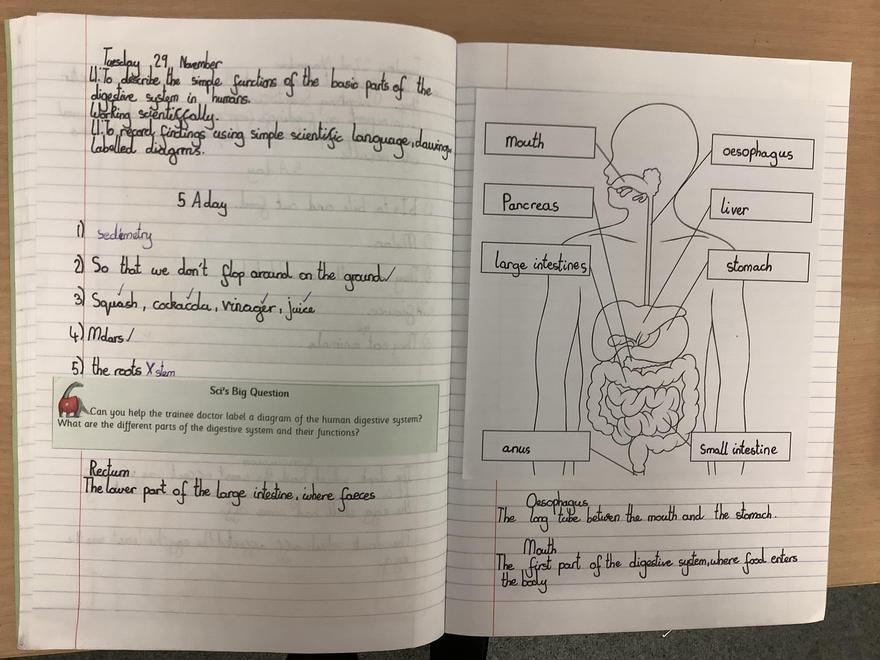 Tuesday 29 November
LI: To describe the simple functions of the basic parts of the
digestive system in humans.
Working scientifically.
LI: To record findings using simple scientific language, drawings,
labelled diagrms.
5 A day
1) sedimetry
2) So that we don't flop around on the ground ✓
3) Squash, cockacola, vinager, juice
4) Molars ✓
5) the roots X stem
Sci's Big Question
Can you help the trainee doctor label a diagram of the human digestive system?
What are the different parts of the digestive system and their functions?
Rectum
The lower part of the large intestine, where faeces
mouth
oesophagus
Pancreas
liver
large intestines
stomach
anus
Small intestine
Oesophagus
The long tube between the mouth and the stomach.
Mouth
The first part of the digestive system, where food enters
the body